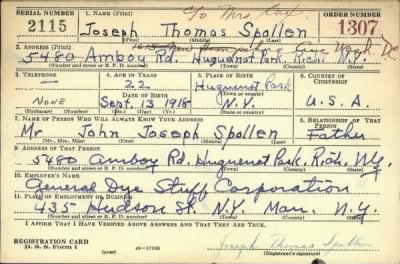 SERIAL NUMBER 1. NAME (Print) c/o Mrs. ORDER NUMBER
2115 Joseph Thomas Spollen 1307
(First) (Middle) (Last)
2. ADDRESS (Print)
5480 Amboy Rd. Huguenot Park, Rich. N.Y.
(Number and street or R. F. D. number) (Town) (County) (State)
3. TELEPHONE 4. AGE IN YEARS 5. PLACE OF BIRTH 6. COUNTRY OF CITIZENSHIP
22 Huguenot Park
DATE OF BIRTH (Town or county)
NONE Sept. 13 1918 N.Y. U.S.A.
(Exchange) (Number) (Mo.) (Day) (Yr.) (State or country)
7. NAME OF PERSON WHO WILL ALWAYS KNOW YOUR ADDRESS 8. RELATIONSHIP OF THAT PERSON
Mr. John Joseph Spollen Father
(Mr., Mrs., Miss) (First) (Middle) (Last)
9. ADDRESS OF THAT PERSON
5480 Amboy Rd. Huguenot Park, Rich, N.Y.
(Number and street or R. F. D. number) (Town) (County) (State)
10. EMPLOYER'S NAME
General Dye Stuff Corporation
11. PLACE OF EMPLOYMENT OR BUSINESS
435 Hudson St. N.Y. Man. N.Y.
(Number and street or R. F. D. number) (Town) (County) (State)
I AFFIRM THAT I HAVE VERIFIED ABOVE ANSWERS AND THAT THEY ARE TRUE.
REGISTRATION CARD
D. S. S. Form 1 16—17105 Joseph Thomas Spollen
(Registrant's signature)